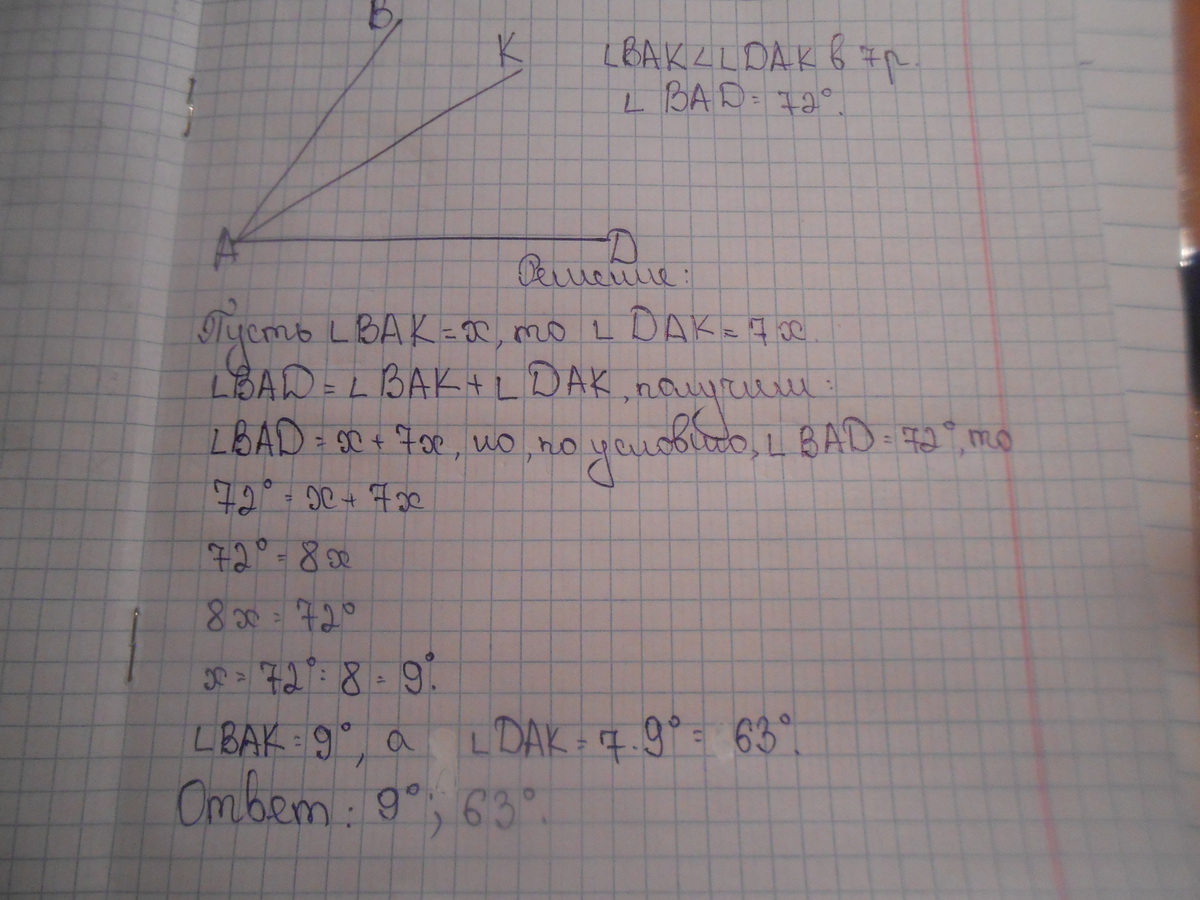 B
K
∠BAK<∠DAK в 7р.
∠BAD=72°.
A
D
Решение:
Пусть ∠BAK=x, то ∠DAK=7x.
∠BAD=∠BAK+∠DAK, получим:
∠BAD=x+7x, но, по условию, ∠BAD=72°, то
72°=x+7x
72°=8x
8x=72°
x=72°:8=9°.
∠BAK=9°, а ∠DAK=7·9°=63°.
Ответ: 9°; 63°.